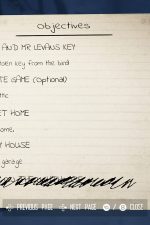 Objectives
AND MR LEVANS KEY
key from the bird
GAME (Optional)
ET HOME
ome.
HOUSE
garage
PREVIOUS PAGE
NEXT PAGE
CLOSE